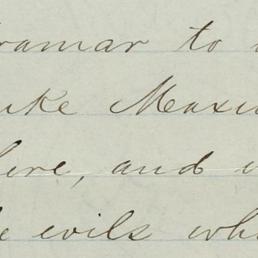 ramar to
uke Maxi
here, and
e evils wh